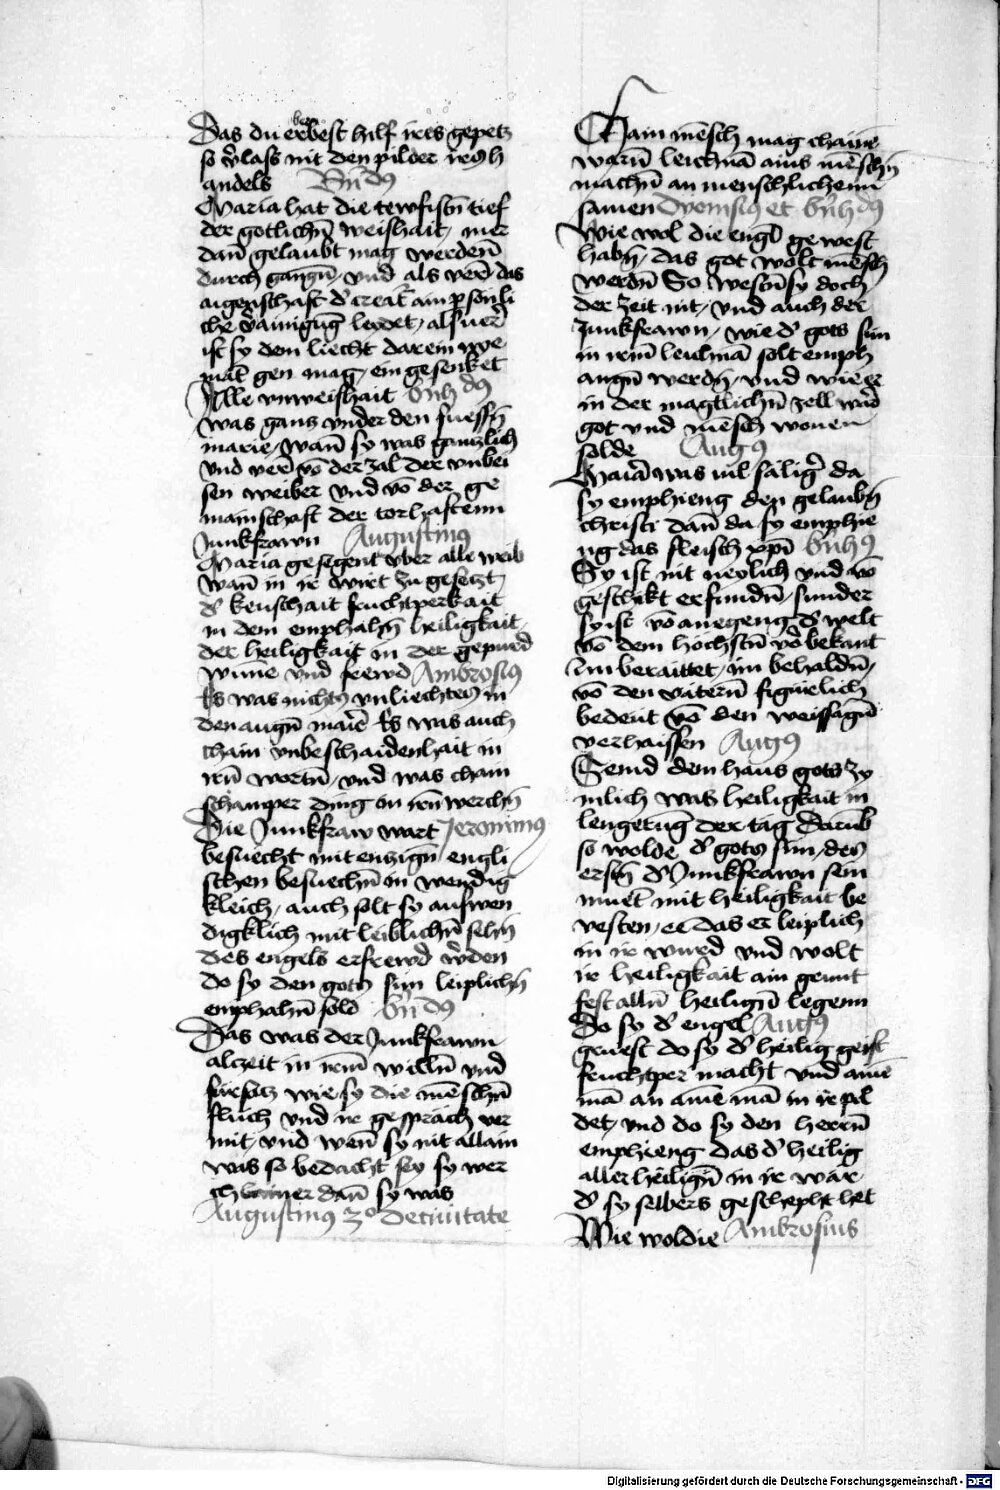 Das du erbest hilf ires gepetz
so v̾lass nit den pilder irs
andels Bn̄dꝰ
Maria hat die tewfistn̄ tief
der gotlichn̄ weishait, mer
dan̄ gelaubt mag werdenn̄
durch gangn̄, vnd als verr das
aigenschaft d̾ creat᷑ ain p̱sōnli
che v̾ainigūg leydet, also verr
ist sy dem liecht darein nye
māt gen mag, ein gesenket
Alle vnweishait bn̄hdꝰ
was gans vnder den fuessn̄
marie, wan̄ sy was gantzlich
vnd verr vō der zal der vnbei
sen weiber vnd vō der ge
mainschaft der torhaftenn
Junkfrawn Augustinus
Maria gesegent vber alle weib
wan̄ in ir wirt zu gesetzt
d̾ keuschait fruchtperkait
in dem emphahn̄ heiligkait
der heiligkait in der gepurd
wūne vnd frewd Ambrosius
Es was nichts vnliechtes in
den augn̄ marie Es was auch
chain vnbeschaidenhait in
irn̄ wortn̄, vnd was chain
schamper ding in irn̄ werchn̄
Die Junkfraw wart Jeronimus
besuecht mit enzign̄ engli
schen besuechn̄ in wendig
kleich, auch solt sy auswen
digklich mit leiblichn̄ sehn̄
des engels erfrewd w̾den
do sy den gots sun leiplichn̄
emphahn̄ sold bn̄dꝰ
Das was der Junkfrawn
alzeit in irm̄ willn̄ vnd
fürsatz wie sy die mēschn̄
fluch vnd ir gesprāch ver
mit, vnd wen̄ sy nit allain
was so bedacht sey sy wer
dan̄ sy was
Augustinus 3º de ciuitate
Chain mēsch mag chainē
warn̄ leichnā ains mēschn̄
machn̄ an menschlichenn
samen Dyonisius et bn̄hdꝰ
Wie wol die engl gewest
habn̄, das got wolt mēsch
werdn̄ So westn̄ sy doch
der zeit nit, vnd auch der
Junkfrawn, wie d̾ gots sun
in irm̄ leichnā solt emph
angn̄ werdn̄, vnd wie er
in der magtlichn̄ zell war̄
got vnd mēsch wonen
solde Augꝰ
Maria was vil sālig̾ da
sy emphieng den gelaubn̄
christi dan̄ da sy emphie
ng das fleisch xp̄i bn̄hꝰ
Sy ist nit newlich vnd vō
geschikt erfundn̄, sunder
sy ist vō anegeng d̾ welt
vō dem hochstn̄ vor bekant
im beraittet, im behaldn̄,
vō den vatern̄ figurlich
bedeut vō den weissagn̄
verhaissen Augꝰ
Send dem haus gots zy
mlich was heiligkait in
lengerūg der tag Darūb
so wolde d̾ gots sun, des
ersn̄ d̾ Junkfrawn sein
muet mit heiligkait be
vesten, ee das er leiplich
in ir wurd vnd wolt
ir heiligkait ain grunt
fest alln̄ heilign̄ legenn
Do sy d̾ engel Augꝰ
gruest do sy d̾ heilig geist
fruchtper macht vnd ainē
mā an ainē mā in ir pil
det, vnd do sy den herrn̄
emphieng das d̾ heilig
aller heilign̄ in ir war
d̾ sy selbers geschephet het
Wie wol die Ambrosius
Digitalisierung gefördert durch die Deutsche Forschungsgemeinschaft - DFG